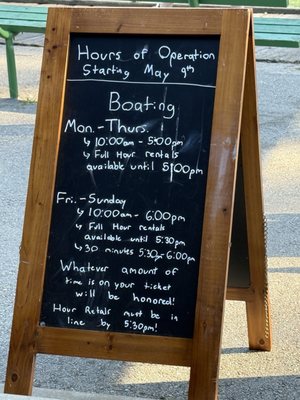 Hours of Operation
Starting May 9th
Boating
Mon.-Thurs.
↳ 10:00am - 5:00pm
↳ Full Hour rentals
available until 5:00pm
Fri. - Sunday
↳ 10:00am - 6:00pm
↳ Full Hour rentals
available until 5:30pm
↳ 30 minutes 5:30pm-6:00pm
Whatever amount of
time is on your ticket
will be honored!
Hour Retals must be in
line by 5:30pm!